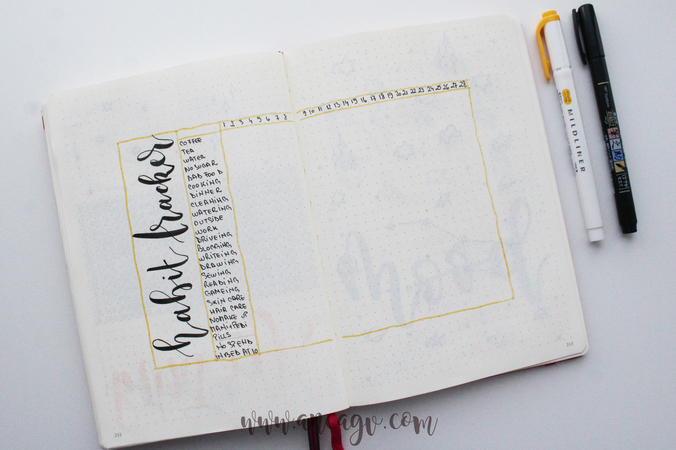 habit tracker
1 2 3 4 5 6 7 8 9 10 11 12 13 14 15 16 17 18 19 20 21 22 23 24 25 26 27 28
COFFEE
TEA
WATER
NO SUGAR
BAD FOOD
COOKING
DINNER
CLEANING
WATERING
OUTSIDE
WORK
DRIVEING
BLOGGING
WRITEING
DRAWING
SEWING
READING
GAMEING
SKIN CARE
HAIR CARE
NOMAKE UP
MANI+PEDI
PILLS
NO SPEND
IN BED AT 10
MILDLINER
www.ancagv.com